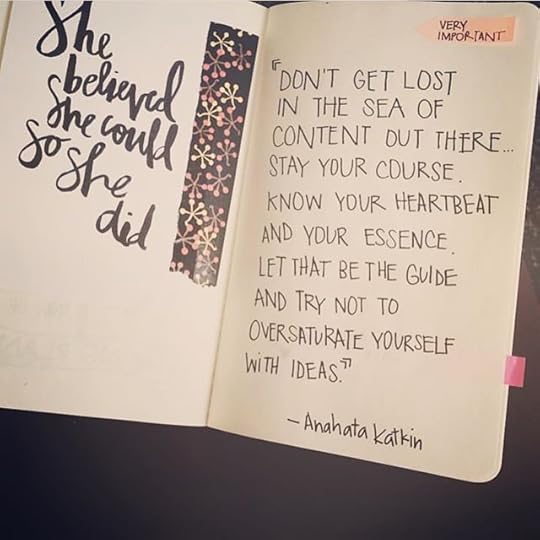 She
believed
she could
so she
did
VERY
IMPORTANT
"DON'T GET LOST
IN THE SEA OF
CONTENT OUT THERE...
STAY YOUR COURSE.
KNOW YOUR HEARTBEAT
AND YOUR ESSENCE.
LET THAT BE THE GUIDE
AND TRY NOT TO
OVERSATURATE YOURSELF
WITH IDEAS."
- Anahata Katkin